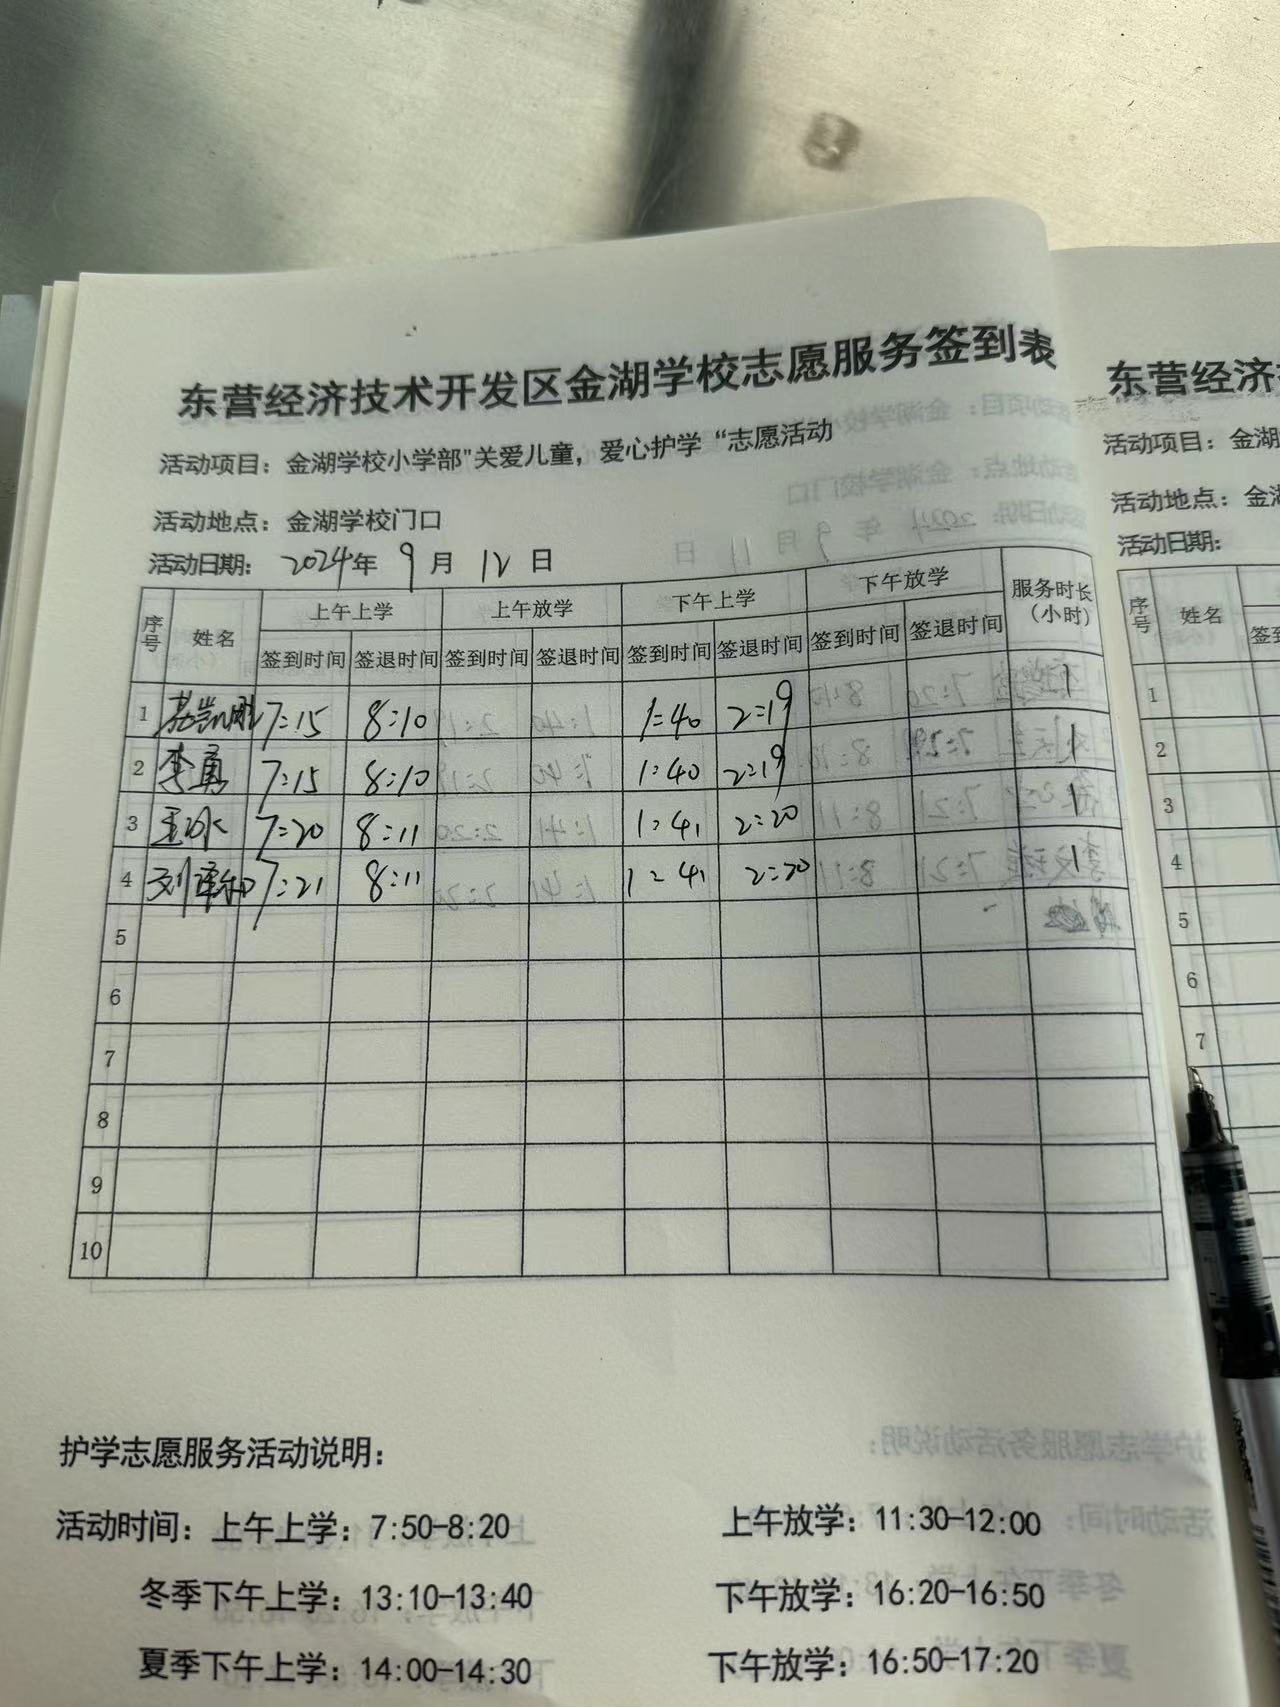 东营经济技术开发区金湖学校志愿服务签到表
活动项目：金湖学校小学部"关爱儿童，爱心护学“志愿活动
活动地点：金湖学校门口
活动日期： 2024年 9月 12日
序号 姓名 上午上学 上午放学 下午上学 下午放学 服务时长（小时）
签到时间 签退时间 签到时间 签退时间 签到时间 签退时间 签到时间 签退时间
1 7:15 8:10 1:40 2:19 1
2 李勇 7:15 8:10 1:40 2:19 1
3 王冰 7:20 8:11 1:41 2:20 1
4 7:21 8:11 1:41 2:20 1
5
6
7
8
9
10
护学志愿服务活动说明：
活动时间：上午上学：7:50-8:20 上午放学：11:30-12:00
冬季下午上学：13:10-13:40 下午放学：16:20-16:50
夏季下午上学：14:00-14:30 下午放学：16:50-17:20
东营经济
活动项目：金湖
活动地点：金
活动日期：
序号 姓名
签到
1
2
3
4
5
6
7